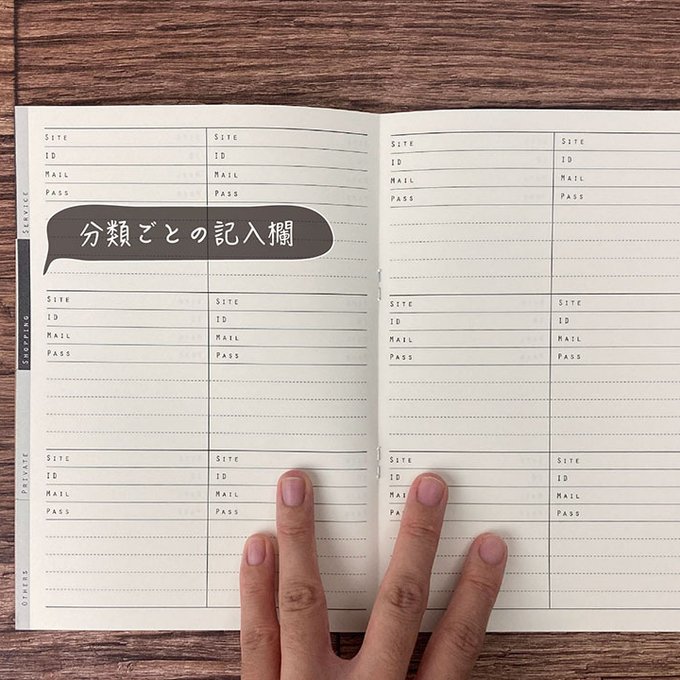 SERVICE
SHOPPING
PRIVATE
OTHERS
分類ごとの記入欄
SITE
ID
MAIL
PASS
SITE
ID
MAIL
PASS
SITE
ID
MAIL
PASS
SITE
ID
MAIL
PASS
SITE
ID
MAIL
PASS
SITE
ID
MAIL
PASS
SITE
ID
MAIL
PASS
SITE
ID
MAIL
PASS
SITE
ID
MAIL
PASS
SITE
ID
MAIL
PASS
SITE
ID
MAIL
PASS
SITE
ID
MAIL
PASS